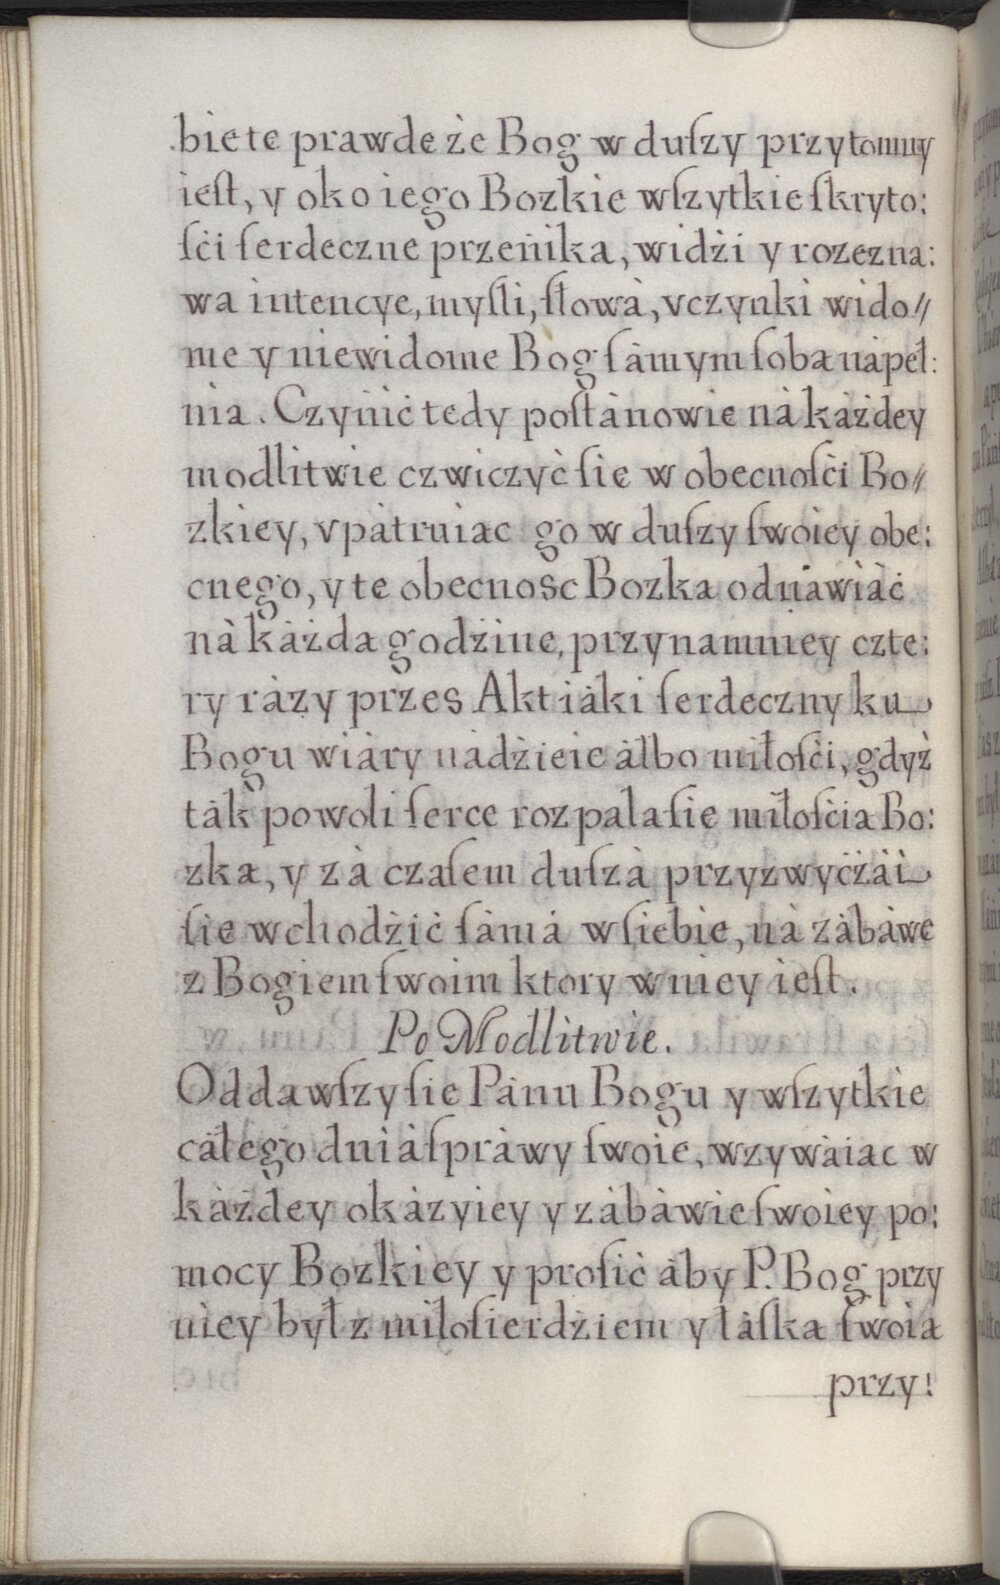 biete prawde że Bog w duſzy przytomny
ieſt, y oko iego Bozkie wſzytkie ſkryto:
ſċi ſerdeczne przenika, widżi y rozezna:
wa intencye, myſli, ſłowà, vczynki wido//
me y niewidome Bog ſàmym ſoba nàpeł:
nia. Czynić tedy poſtànowie nà każdey
modlitwie czwiczyċ ſie w obecnoſċi Bo//
zkiey, vpàtruiac go w duſzy ſwoiey obe:
cnego, y te obecnosc Bozka odnawiàċ
nà kàżda godżine, przynamniey czte:
ry ràzy przes Akt iàki ſerdeczny ku
Bogu wiàry nàdżieie àlbo miłoſċi, gdyż
tàk powoli ſerce rozpala ſie miłoſċia Bo:
zka, y zà czaſem duſzà przyzwyċżài
ſie wchodżiċ ſàmà w ſiebie, nà zàbàwe
z Bogiem ſwoim ktory w niey ieſt.
Po Modlitwie.
Oddawſzy ſie Pànu Bogu y wſzytkie
całego dnià ſpràwy ſwoie, wzywàiac w
kàżdey okàzyiey y zàbàwie ſwoiey po:
mocy Bozkiey y proſiċ àby P. Bog przy
niey był z miłoſierdżiem y łàſka ſwoià
przy: